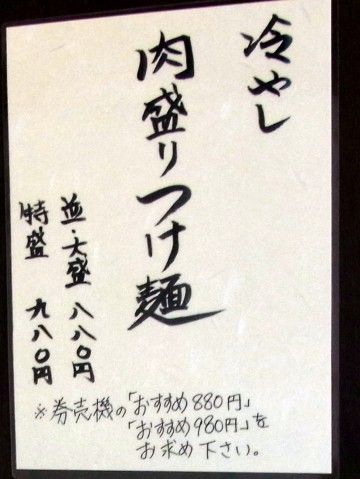 冷やし
肉盛りつけ麺
並・大盛 八八〇円
特盛 九八〇円
※券売機の「おすすめ880円」
「おすすめ980円」を
お求め下さい。